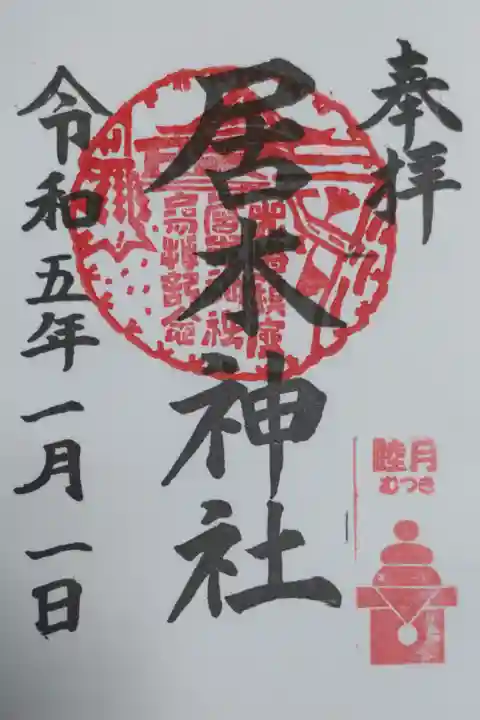 奉拝
居木神社
令和五年一月一日
睦月
むつき